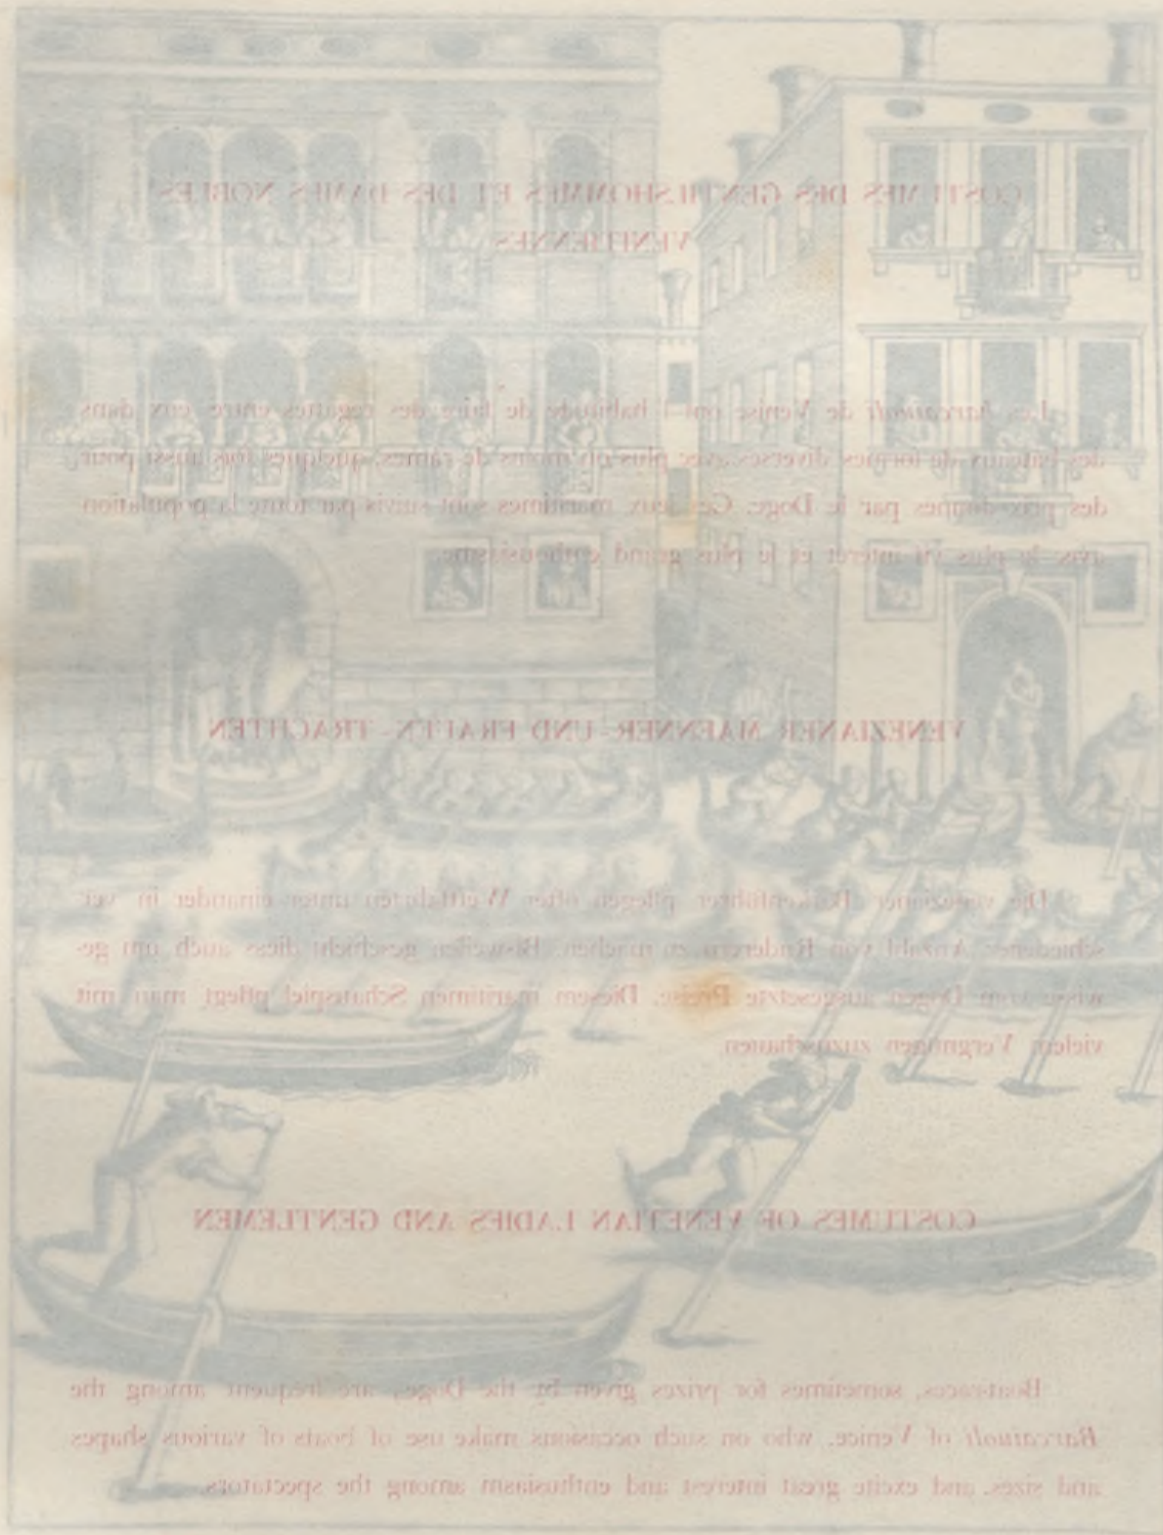 COSTUMES DES GENTILSHOMMES ET DES DAMES NOBLES
VENITIENNES
Les barcaruoli de Venise ont l'habitude de faire des régattes entre eux dans
des bateaux de formes diverses avec plus ou moins de rames, quelques fois aussi pour
des prix donnés par le Doge. Ces jeux maritimes sont suivis par toute la population
avec le plus vif intéret et le plus grand enthousiasme.
VENEZIANER MAENNER- UND FRAUEN- TRACHTEN
Die venezianer Barkenführer pflegen öfter Wettfahrten unter einander in ver-
schiedener Anzahl von Ruderern zu machen. Bisweilen geschieht diess auch um ge-
wisse vom Dogen ausgesetzte Preise. Diesem maritimen Schauspiel pflegt man mit
vielem Vergnügen zuzuschauen.
COSTUMES OF VENETIAN LADIES AND GENTLEMEN
Boat-races, sometimes for prizes given by the Doge, are frequent among the
Barcaruoli of Venice, who on such occasions make use of boats of various shapes
and sizes and excite great interest and enthusiasm among the spectators.